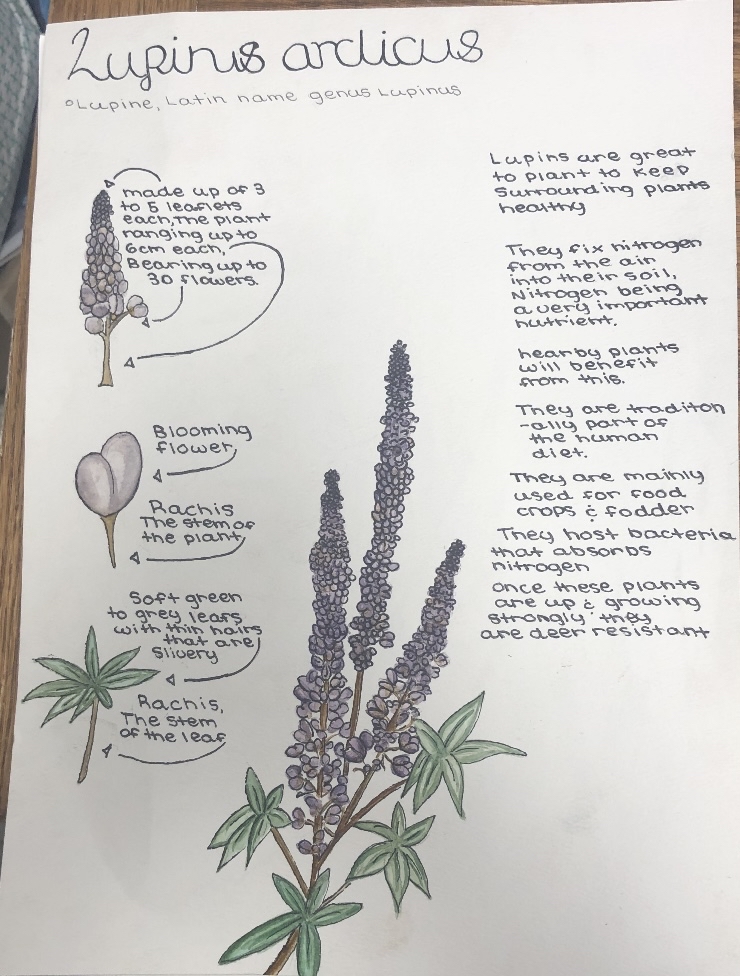 Lupinus arcticus
°Lupine, Latin name genus Lupinus
made up of 3
to 5 leaflets
each, the plant
ranging up to
6cm each,
Bearing up to
30 flowers.
Blooming
flower,
Rachis
The stem of
the plant,
Soft green
to grey lears
with thin hairs
that are
slivery
Rachis,
The stem
of the leaf
Lupins are great
to plant to keep
surrounding plants
healthy
They fix nitrogen
from the air
into their soil,
Nitrogen being
a very important
nutrient.
nearby plants
will benefit
from this.
They are traditon
-ally part of
the human
diet.
They are mainly
used for food
crops & fodder
They host bacteria
that absorbs
nitrogen
once these plants
are up & growing
strongly they
are deer resistant